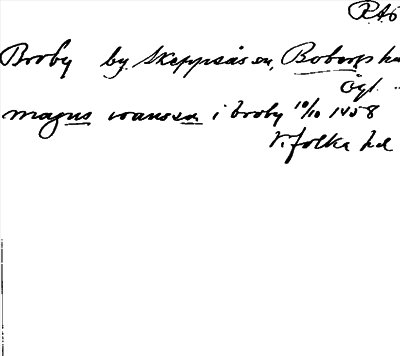 RAÖ
Broby by, Skeppsås sn, Bobergs hd
Ögl.
magnus ionsson i broby 10/10 1458
V. folka hd